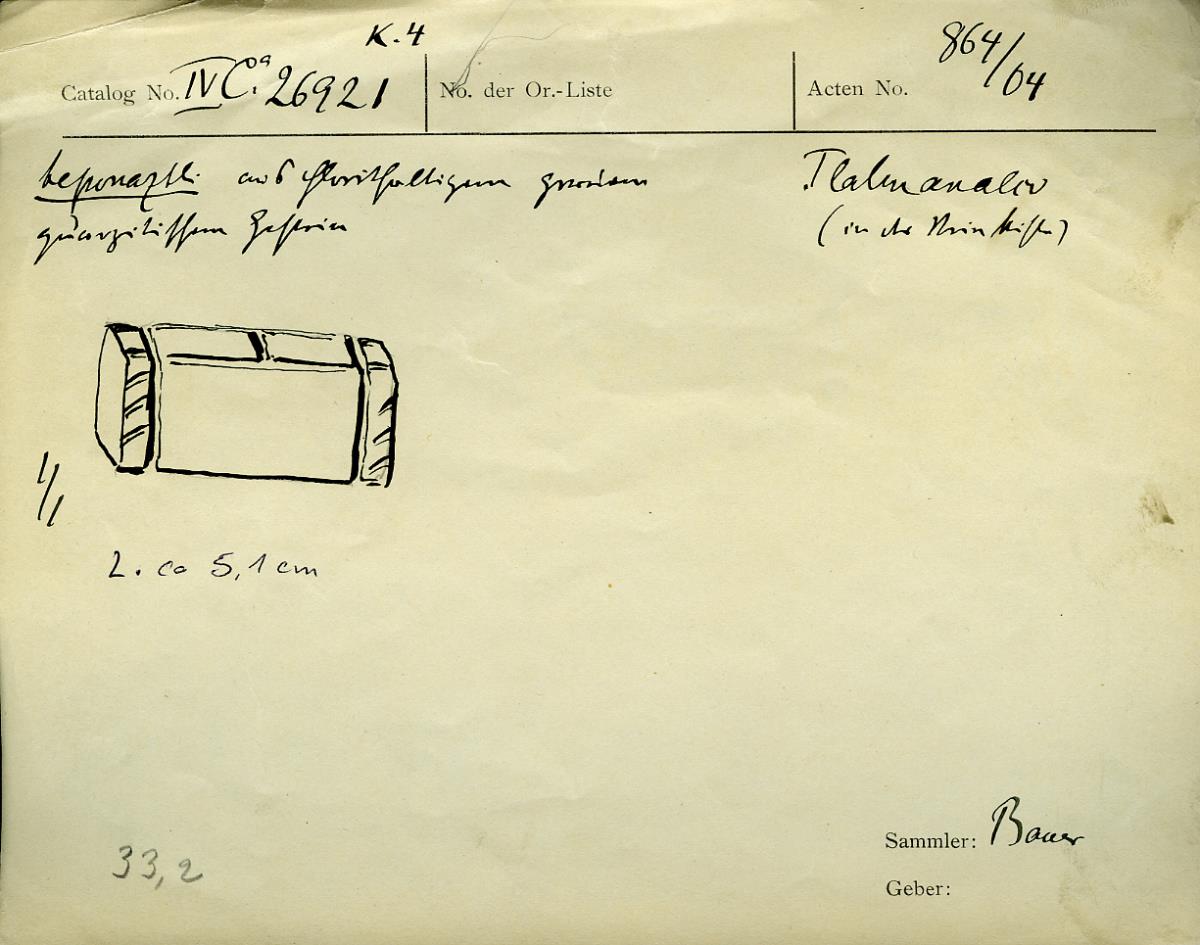 K.4
Catalog No. IV Ca. 26921
No. der Or.-Liste
Acten No. 864/04
teponaztli aus chlorithaltigem grauem
quarzitischem Gestein
Tlalmanalco
(in der Steinkiste)
1/1
L. ca 5,1 cm
33,2
Sammler: Bauer
Geber: